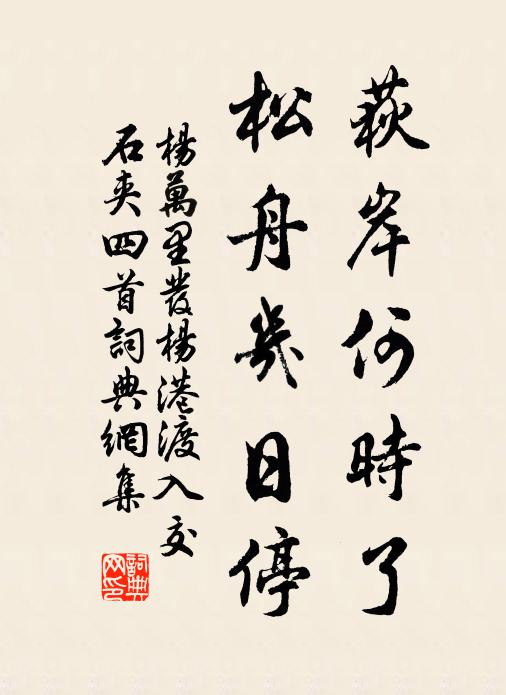 荻岸何時了
松舟幾日停
楊萬里發楊港渡入交
石夾四首詞典網集
詞典
网印